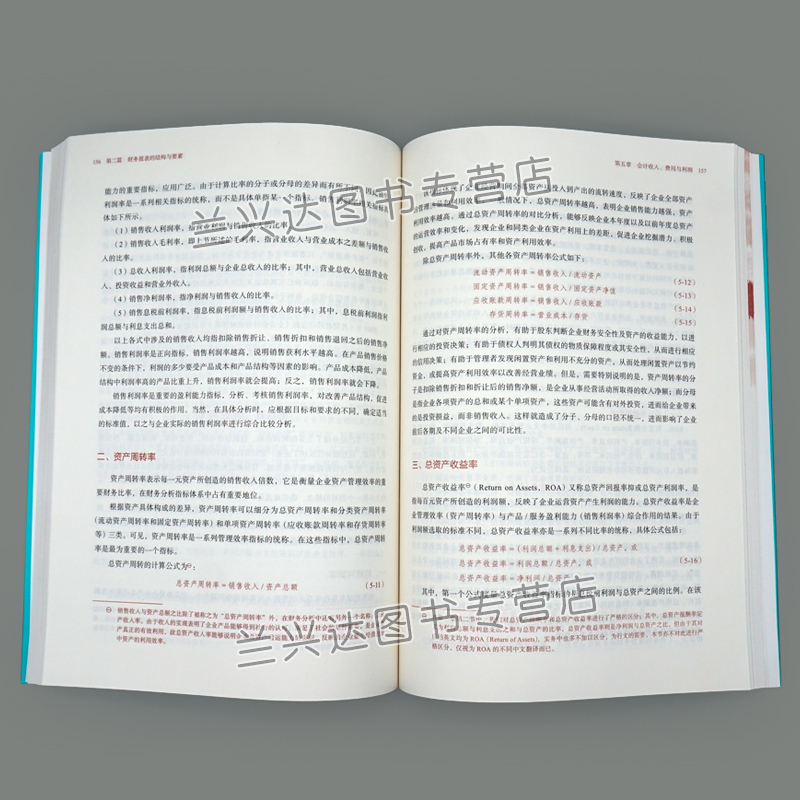 156 第二篇 财务报表的结构与要素
能力的重要指标，应用广泛。由于计算比率的分子或分母的差异而有所不同，因此销售
利润率是一系列相关指标的统称，而不是具体单指某一个指标。销售利润率相关指标具
体如下所示。
（1）销售收入利润率，指营业利润与销售收入的比率。
（2）销售收入毛利率，即上节所述的毛利率，指营业收入与营业成本之差额与销售收
入的比率。
（3）总收入利润率，指利润总额与企业总收入的比率；其中，营业总收入包括营业收
入、投资收益和营业外收入。
（4）销售净利润率，指净利润与销售收入的比率。
（5）销售息税前利润率，指息税前利润额与销售收入的比率；其中，息税前利润指利
润总额与利息支出总和。
以上各式中涉及的销售收入均指扣除销售折让、销售折扣和销售退回之后的销售净
额。销售利润率是正向指标，销售利润率越高，说明销售获利水平越高。在产品销售价格
不变的条件下，利润的多少要受产品成本和产品结构等因素的影响。产品成本降低，产品
结构中利润率高的产品比重上升，销售利润率就会提高；反之，销售利润率就会下降。
销售利润率是重要的盈利能力指标，分析、考核销售利润率，对改善产品结构，促进
成本降低等均有积极的作用。当然，在具体分析时，应根据目标和要求的不同，确定适当
的标准值，以之与企业实际的销售利润率进行综合比较分析。
二、资产周转率
资产周转率表示每一元资产所创造的销售收入倍数，它是衡量企业资产管理效率的重
要财务比率，在财务分析指标体系中占有重要地位。
根据资产具体构成的差异，资产周转率可以细分为总资产周转率和分类资产周转率
（流动资产周转率和固定资产周转率）和单项资产周转率（应收账款周转率和存货周转率
等）三类。可见，资产周转率是一系列管理效率指标的统称。在这些指标中，总资产周转
率是最为重要的一个指标。
总资产周转的计算公式为㊀：
总资产周转率＝销售收入/资产总额 (5-11)
㊀ 销售收入与资产总额之比除了被称之为“总资产周转率”外，在财务分析中还
第五章 会计收入、费用与利润 157
的运营效率和变化，发现企业和同类企业在资产利用上的差距，促进企业挖掘潜力、积极
创收，提高产品市场占有率和资产利用效率。
除总资产周转率外，其他各资产周转率公式如下：
流动资产周转率＝销售收入/流动资产 (5-12)
固定资产周转率＝销售收入/固定资产净值 (5-13)
应收账款周转率＝销售收入/应收账款 (5-14)
存货周转率＝营业成本/存货 (5-15)
通过对资产周转率的分析，有助于股东判断企业财务安全性及资产的收益能力，以进
行相应的投资决策；有助于债权人判明其债权的物质保障程度或其安全性，从而进行相应
的信用决策；有助于管理者发现闲置资产和利用不充分的资产，从而处理闲置资产以节约
资金，或提高资产利用效率以改善经营业绩。但是，需要特别说明的是，资产周转率的分
子是扣除销售折扣和折让后的销售净额，是企业从事经营活动所取得的收入净额；而分母
是指企业各项资产的总和或某个单项资产，这些资产可能含有对外投资，进而给企业带来
的是投资损益，而非销售收入。这样就造成了分子、分母的口径不统一，进而影响了企业
前后各期及不同企业之间的可比性。
三、总资产收益率
总资产收益率㊀（Return on Assets，ROA）又称总资产回报率抑或总资产利润率，是
指每百元资产所创造的利润额，反映了企业运营资产产生利润的能力。总资产收益率是企
业管理效率（资产周转率）与产品/服务盈利能力（销售利润率）综合作用的结果。由于
利润额选取的标准不同，总资产收益率亦是一系列不同比率的统称，具体公式包括：
总资产收益率＝（利润总额＋利息支出）/总资产，或
总资产收益率＝利润总额/总资产，或 (5-16)
总资产收益率＝净利润/总资产
格区分，仅视为 ROA 的不同中文翻译而已。
兰兴达图书专营店
兰兴达图书专营店